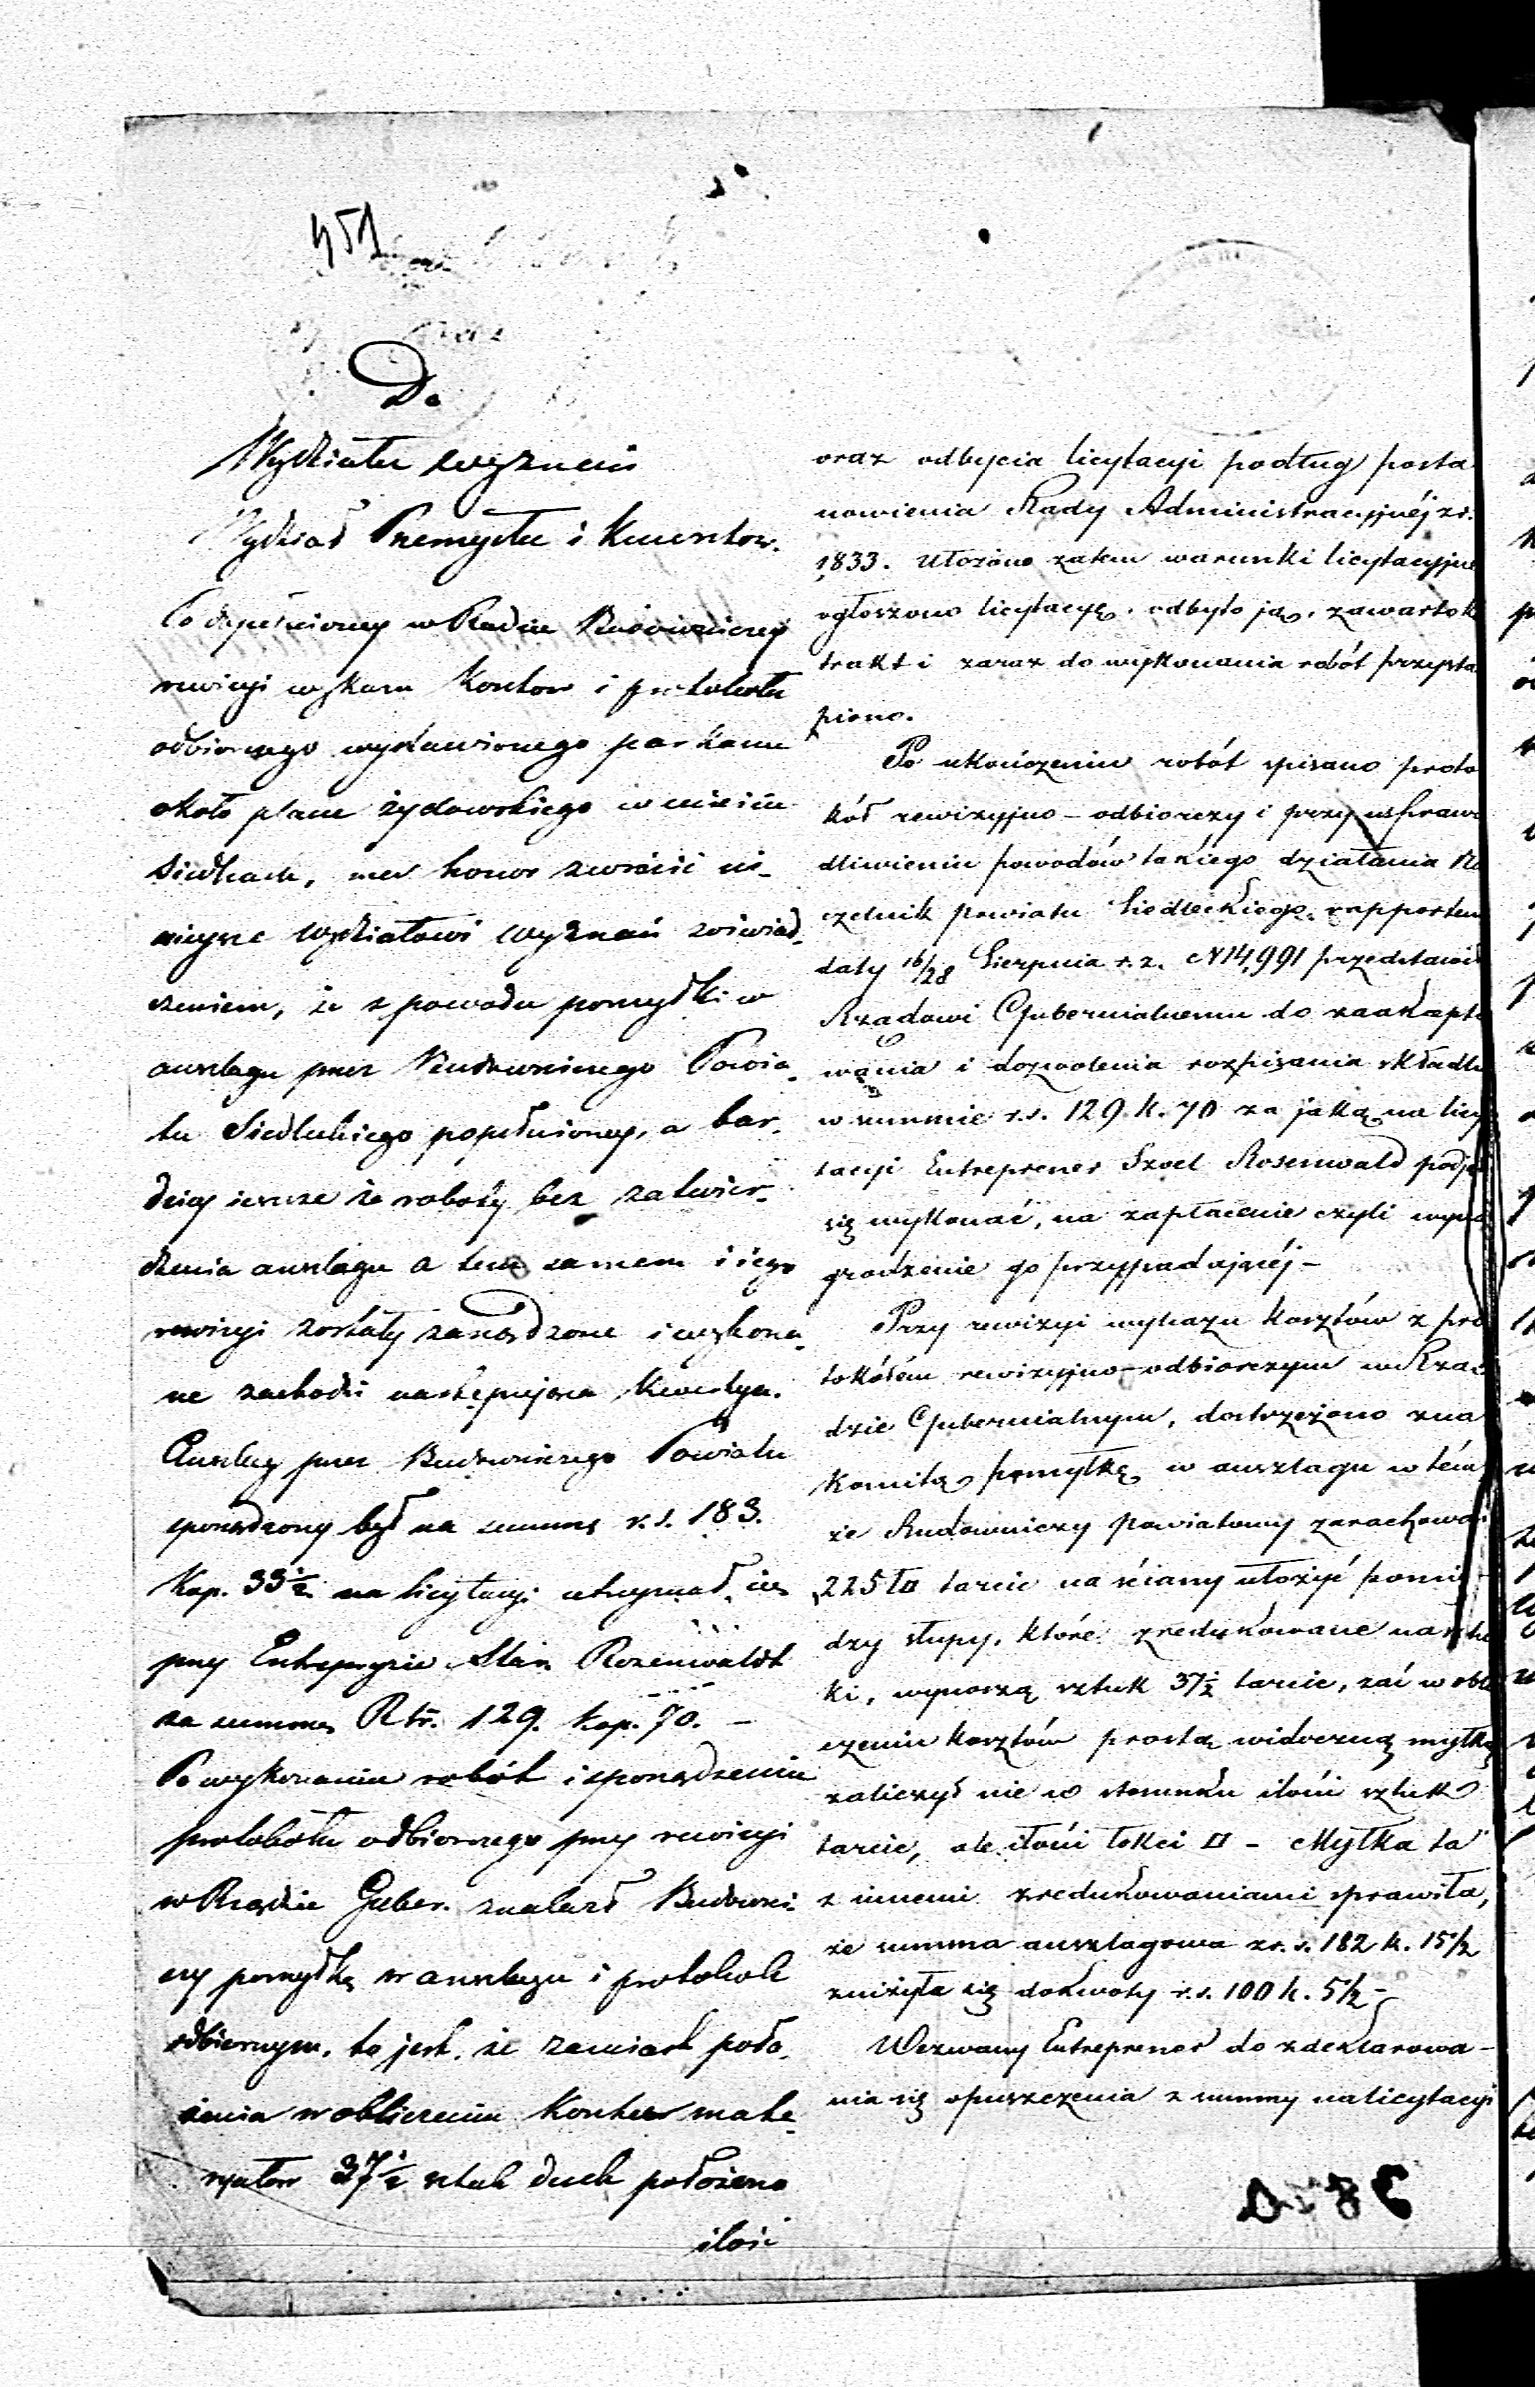 451
Do
Wydziału wyznań
Wydział Przemysłu i Kunsztow.
Po dopełnioney w Radzie Budowniczey
rewizyi wykazu Kosztow i protokołu
odbiorczego wystawionego parkanu
około placu żydowskiego w mieście
Siedlcach, ma honor zwrócić ni-
nieysze Wydziałowi Wyznań z oświad-
czeniem, że z powodu pomyłki w
anszlagu przez Budowniczego Powia-
tu Siedleckiego popełnioney, a bar-
dziey ieszcze że roboty bez zatwier-
dzenia anszlagu a tem samem i iego
rewizyi zostały zarządzone i wykona-
ne zachodzi następująca kwestya.
Anszlag przez Budowniczego Powiatu
sporządzony był na summę r.s. 183.
Kop. 33½ na licytacyi utrzymał się
przy Entrepryzie Rozenwaldt
za summę Rsr. 129. kop. 70. –
Po wykonaniu robót i sporządzeniu
protokołu odbiorczego przy rewizyi
w Rządzie Guber. znalazł Budowni-
czy pomyłkę w anszlagu i protokole
odbiorczym, to jest, że zamiast poło-
żenia w obliczeniu Kosztow mate-
ryałow 37½ sztuk położono
ilość
oraz odbycia licytacyi podług posta
nowienia Rady Administracyjnéj z r.
1833. Ułożono zatem warunki licytacyjne
ogłoszono licytacyę, odbyto ją, zawarto k
trakt i zaraz do wykonania robót przystą
piono.
Po ukończeniu robót spisano proto
kół rewizyjno-odbiorczy i przy usprawi
dliwieniu powodów takiego działania Na
czelnik powiatu Siedleckiego rapportem
daty 16/28 Sierpnia r.z. N 14,991 przedstawił
Rządowi Gubernialnemu do zaakcepto
wania i dozwolenia rozpisania składki
w summie r.s. 129 k. 70 za jaką na licy
tacyi Entreprener Szoel Rosenwald podjął
się wykonać, na zapłacenie czyli wyna
grodzenie go przypadającéj –
Przy rewizyi wykazu kosztów z pro
tokółem rewizyjno-odbiorczym w Rzą
dzie Gubernialnym, dostrzeżono zna
komitą pomyłkę w anszlagu w tém
że Budowniczy powiatowy zarachował
225 ł□ tarcic na ściany ułożyć pomię
dzy słupy, które zredukowane na sztu
ki, wynoszą sztuk 37½ tarcic, zaś w obli
czeniu kosztów prostą widoczną myłką
zaliczył nie w stosunku ilości sztuk
tarcic, ale ilości łokci □ – Myłka ta
z innemi zredukowaniami sprawiła,
że summa anszlagowa z r.s. 182 k. 15½
zniżyła się do kwoty r.s. 100 k. 5½ –
Wezwany Entreprener do zdeklarowa-
nia się opuszczenia z summy na licytacyi